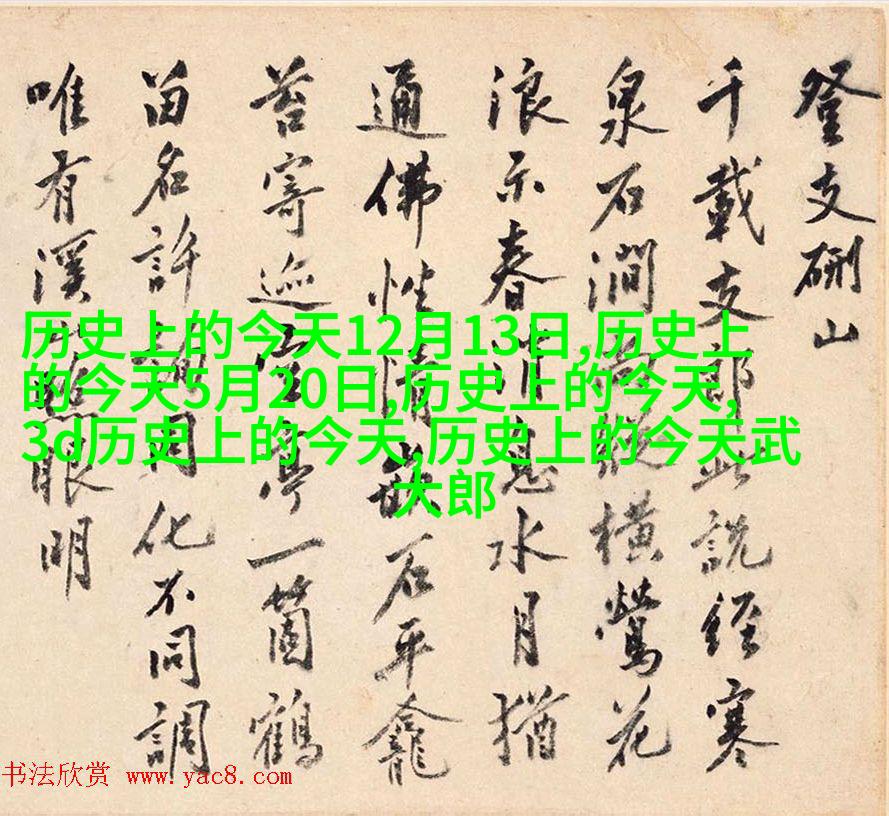 登支硎山
千載支郎此説經寒
泉石澗尚縱橫鶯花
浪示春消息水月猶
通佛性清嵌石平龕
苔寄迹空亭一箇鶴
留名許詢同化不同調
唯有溪山照眼明
历史上的今天12月13日,历史上
的今天5月20日,历史上的今天,
3d历史上的今天,历史上的今天武
大郎
书法欣赏 www.yac8.com